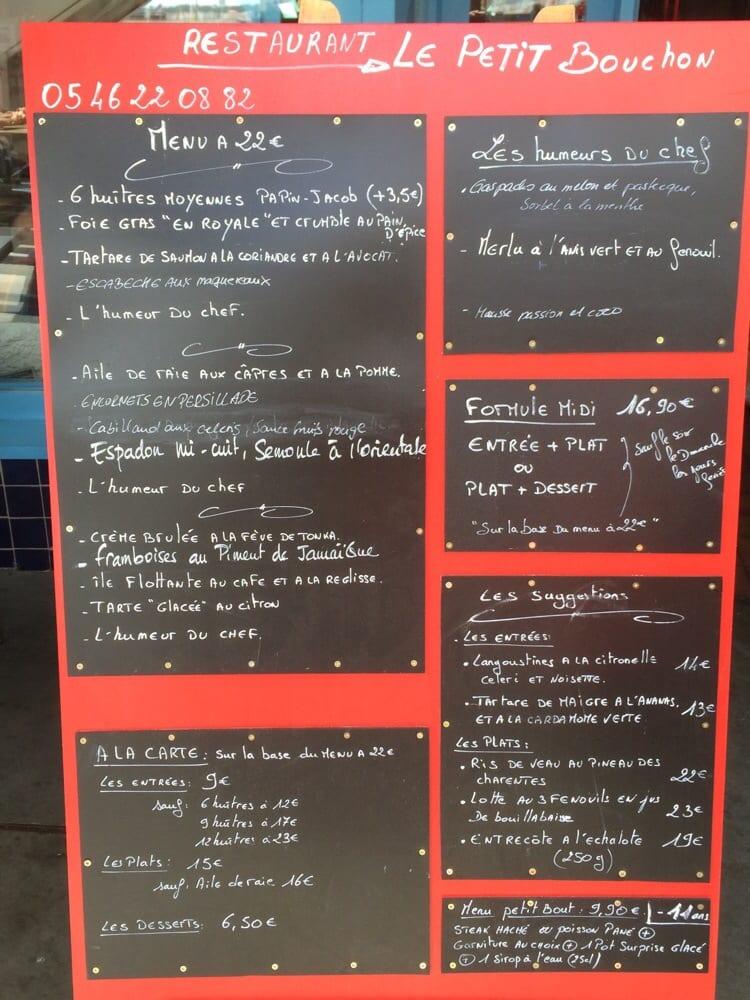 RESTAURANT LE PETIT BOUCHON
05 46 22 08 82
MENU A 22€
- 6 huîtres MOYENNES PAPIN-JACOB (+3,5€)
- FOIE GRAS "EN ROYALE" ET CRUMBLE AU PAIN
D'ÉPICE
- TARTARE DE SAUMON A LA CORIANDRE ET A L'AVOCAT.
- ESCABECHE AUX maquereaux
- L'humeur DU CHEF.
- AILE DE RAIE AUX CÂPRES ET A LA POMME.
ENCORNETS EN PERSILLADE
- Cabillaud aux celeris, sauce fruits rouge
- Espadon mi-cuit, Semoule à l'orientale
- L'humeur DU CHEF
- CRÈME BRULÉE A LA FÈVE DE TONKA.
- framboises au Piment de Jamaïque
- ÎLE FLOTTANTE AU CAFE ET A LA REGLISSE.
- TARTE "GLACÉE" AU CITRON
- L'humeur DU CHEF.
A LA CARTE: Sur la base du MENU A 22€
LES ENTRÉES: 9€
sauf: 6 huîtres à 12€
9 huîtres à 17€
12 huîtres à 23€
Les Plats: 15€
sauf. Aile de raie 16€
LES DESSERTS: 6,50€
LES humeurs DU chef
. Gaspacho au melon et pasteque,
Sorbet à la menthe
- Merlu à l'ANIS VERT ET AU fenouil.
- Mousse passion et coco
FORMULE MIDI 16,90€
ENTRÉE + PLAT
OU
PLAT + DESSERT
Sauf le soir
le Dimanche
les jours
feriés
"Sur la base Du menu à 22€"
LES Suggestions
. LES ENTRÉES:
• Langoustines A LA citronelle 14€
CELERI ET NOISETTE.
• TARTARE DE MAIGRE A L'ANANAS. 13€
ET A LA CARDAMOME VERTE
LES PLATS:
• RIS DE VEAU AU PINEAU DES
CHARENTES 22€
• Lotte AU 3 FENOUILS EN jus
De bouillabaisse 23€
• ENTRECÔTE A l'echalote 19€
(250g)
Menu petit Bout: 9,90€ - 11 ans
STEAK HACHÉ OU POISSON PANÉ +
Garniture AU CHOIX + 1 Pot Surprise GLACÉ
+ 1 Sirop à l'eau (25cl)